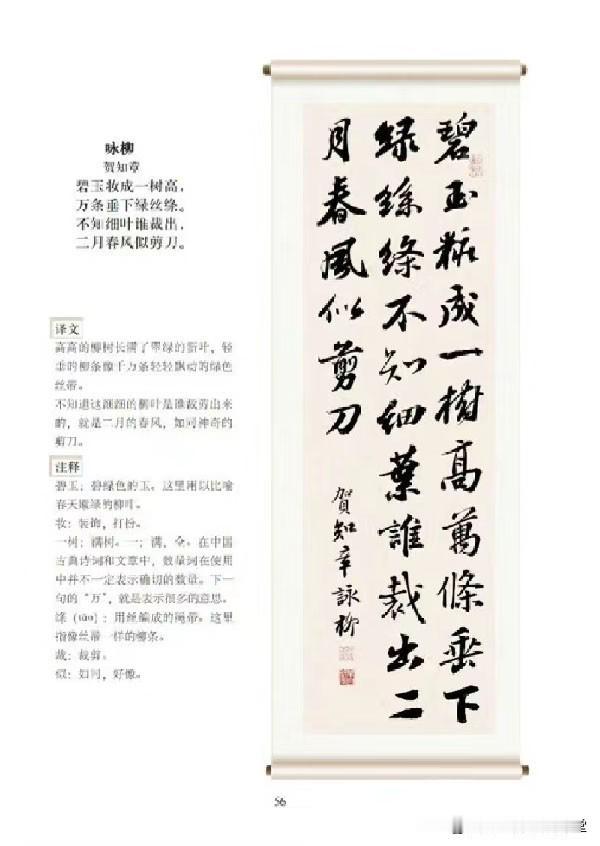 咏柳
贺知章
碧玉妆成一树高，
万条垂下绿丝绦。
不知细叶谁裁出，
二月春风似剪刀。
译文
高高的柳树长满了翠绿的新叶，轻
垂的柳条像千万条轻轻飘动的绿色
丝带。
不知道这细细的柳叶是谁裁剪出来
的，就是二月的春风，如同神奇的
剪刀。
注释
碧玉：碧绿色的玉。这里用以比喻
春天嫩绿的柳叶。
妆：装饰，打扮。
一树：满树。一：满，全。在中国
古典诗词和文章中，数量词在使用
中并不一定表示确切的数量。下一
句的“万”，就是表示很多的意思。
绦（tāo）：用丝编成的绳带。这里
指像丝带一样的柳条。
裁：裁剪。
似：如同，好像。
碧玉粧成一樹高萬條垂下
绿絲絛不知細葉誰裁出二
月春風似剪刀
賀知章詠柳
56